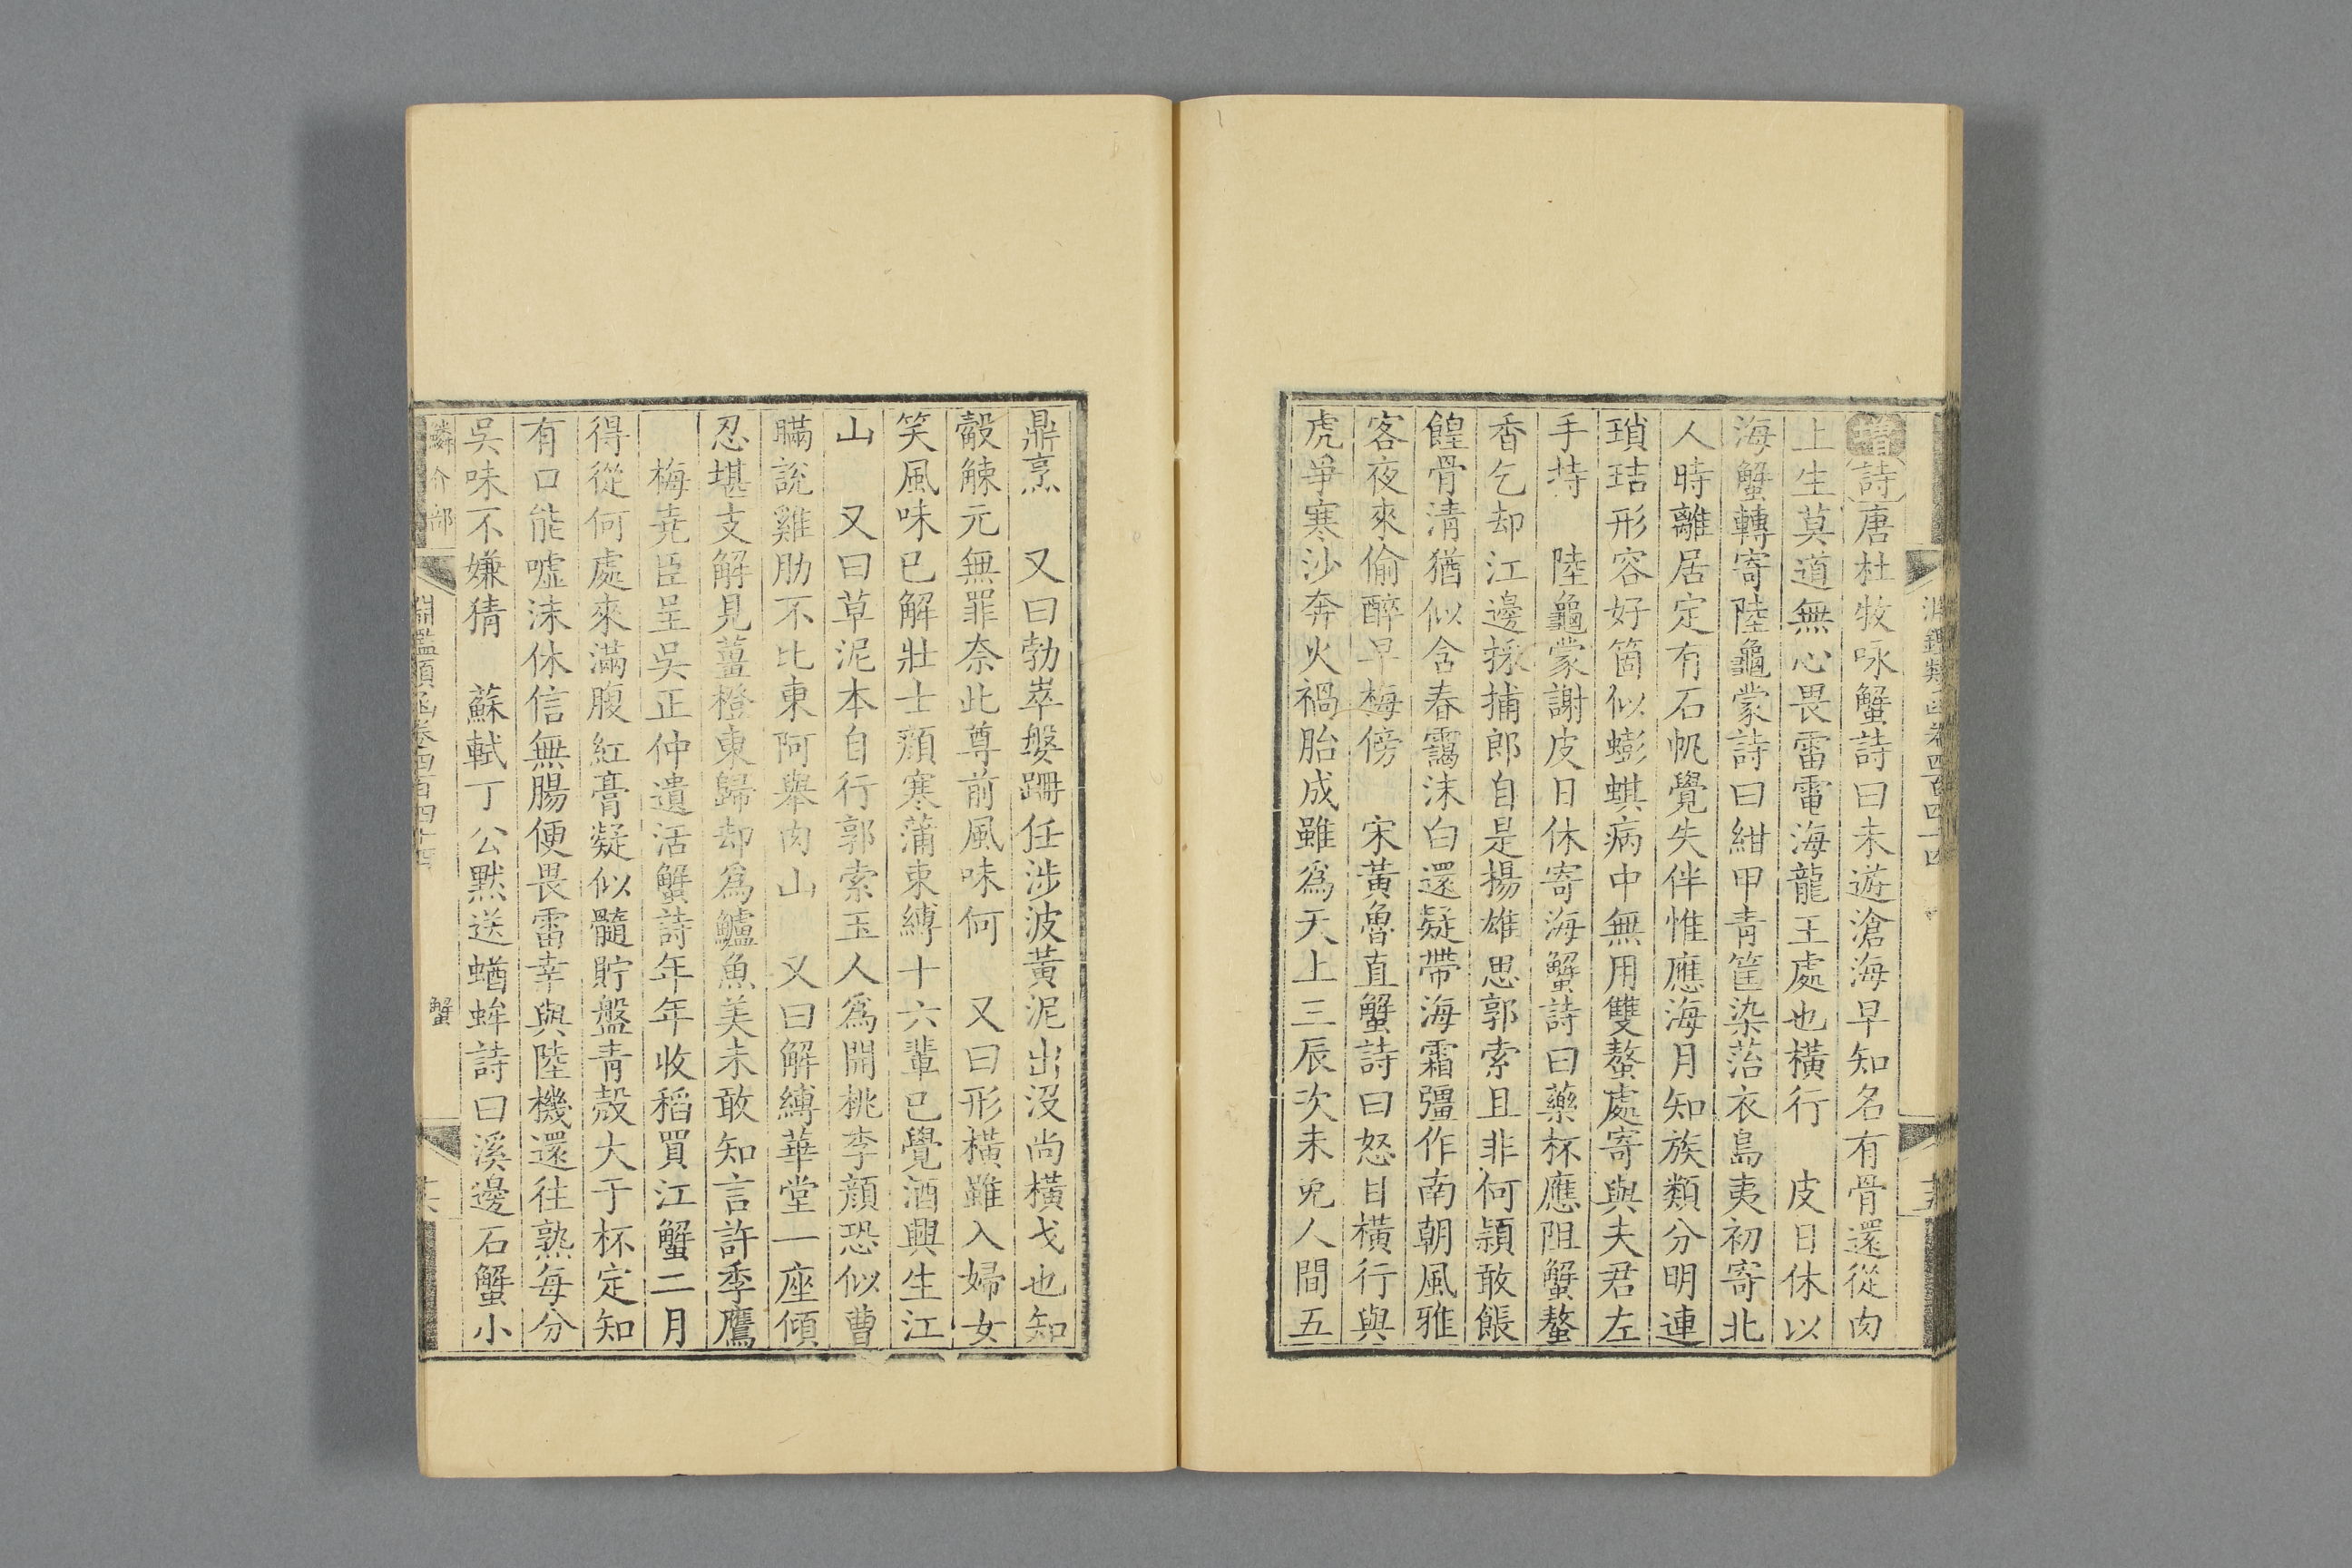 淵鑑類函卷四百四十四
增詩唐杜牧咏蟹詩曰未遊滄海早知名有骨還從肉
上生莫道無心畏雷電海龍王處也橫行　皮日休以
海蟹轉寄陸龜蒙詩曰紺甲青筐染菭衣島夷初寄北
人時離居定有石帆覺失伴惟應海月知族類分明連
瑣琂形容好箇似蟛蜞病中無用雙螯處寄與夫君左
手持　陸龜蒙謝皮日休寄海蟹詩曰藥杯應阻蟹螯
香乞却江邊採捕郎自是揚雄思郭索且非何穎敢餦
餭骨清猶似含春靄沫白還疑帶海霜彊作南朝風雅
客夜來偷醉早梅傍　宋黃魯直蟹詩曰怒目橫行與
虎爭寒沙奔火禍胎成雖爲天上三辰次未免人間五
鼎烹　又曰勃崒媻跚任涉波黃泥出没尚橫戈也知
觳觫元無罪奈此尊前風味何　又曰形橫雖入婦女
笑風味已解壯士顏寒蒲束縛十六輩已覺酒興生江
山　又曰草泥本自行郭索玉人爲開桃李顏恐似曹
瞞說雞肋不比東阿舉肉山　又曰解縛華堂一座傾
忍堪支解見薑橙東歸却爲鱸魚美未敢知言許季鷹
梅堯臣呈吳正仲遺活蟹詩年年收稻買江蟹二月
得從何處來滿腹紅膏凝似髓貯盤青殼大于杯定知
有口能噓沫休信無腸便畏雷幸與陸機還往熟每分
吳味不嫌猜　蘇軾丁公默送蝤蛑詩曰溪邊石蟹小
鱗介部　淵鑑類函卷四百四十四　蟹